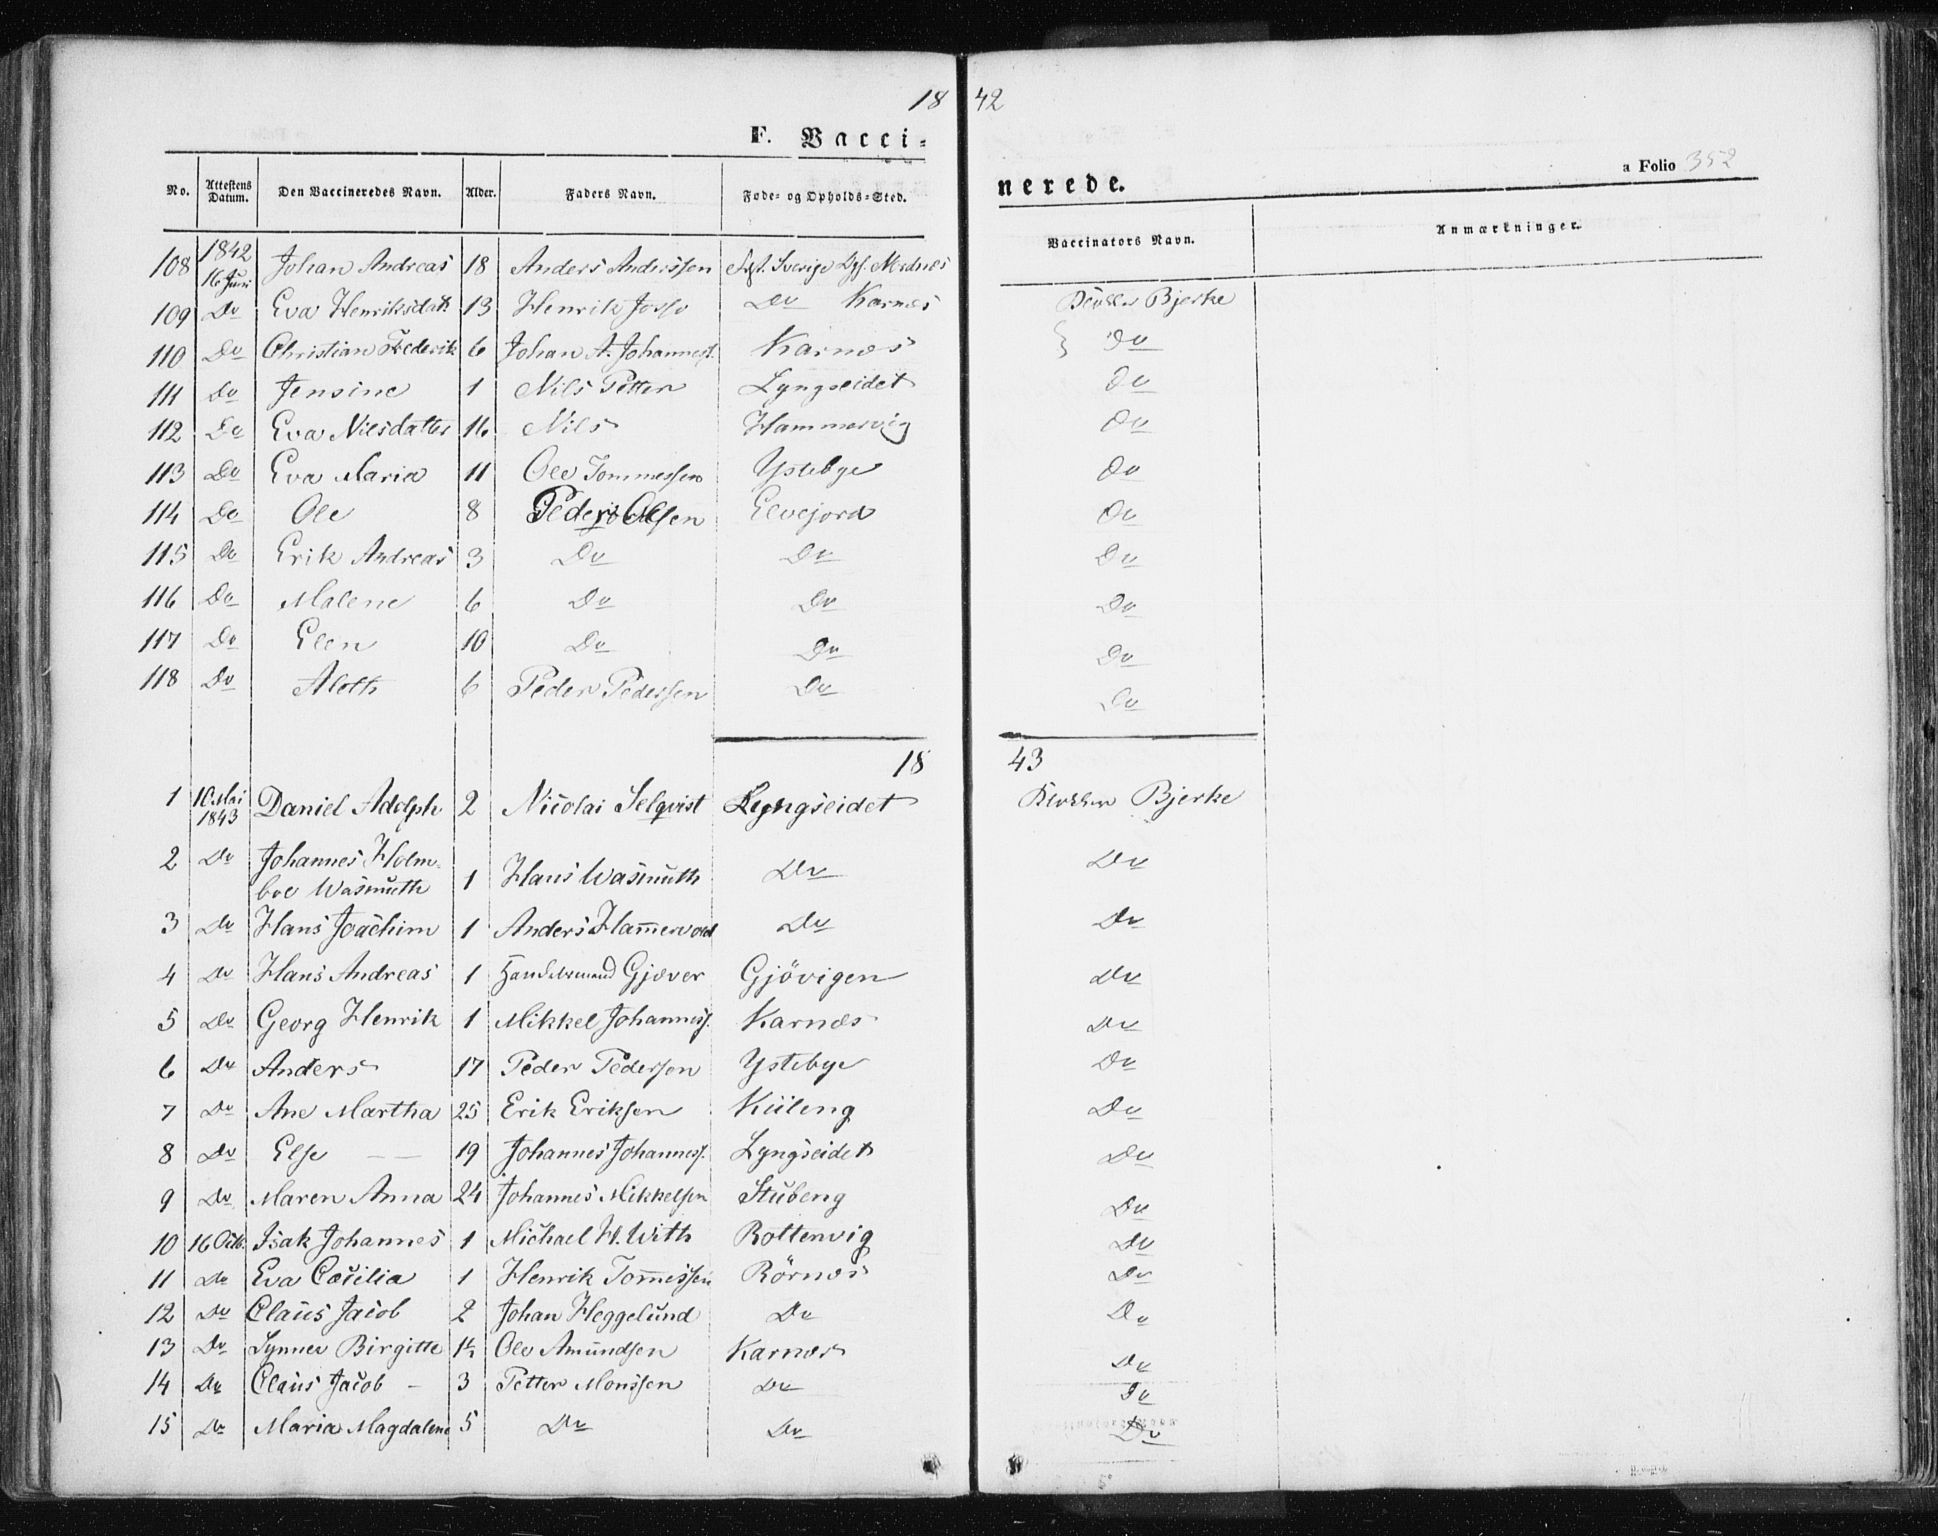 18 42
F. Vacci-
nerede.
a Folio 352
No. Attestens Datum. Den Vaccineredes Navn. Alder. Faders Navn. Føde- og Opholds-Sted. Vaccinators Navn. Anmærkninger.
108 1842 16 Juni Johan Andreas 18 Anders Anderssen Sverige Klokker Bjerke
109 Do Eva Henriksdatr 13 Henrik Do Karnæs Do
110 Do Christian Frederik 6 Johan A. Johanness. Karnæs
111 Do Jensine 1 Nils Petter Lyngseidet Do
112 Do Eva Nilsdatter 16 Nils Hammervig Do
113 Do Eva Maria 11 Ole Tommessen Ystebye Do
114 Do Ole 8 Peder Olsen Elvejord Do
115 Do Erik Andreas 3 Do Do Do
116 Do Malene 6 Do Do Do
117 Do Elen 10 Do Do Do
118 Do Aleth 6 Peder Pedersen Do Do
18 43
1 10 Mai 1843 Daniel Adolph 2 Nicolai Selqvist Lyngseidet Klokker Bjerke
2 Do Johannes Holm-
boe Wasmuth 1 Hans Wasmuth Do Do
3 Do Hans Joachim 1 Anders Ham̄ervold Do Do
4 Do Hans Andreas 1 Handelsmand Gjæver Gjövigen Do
5 Do Georg Henrik 1 Mikkel Johanness. Karnæs Do
6 Do Anders 17 Peder Pedersen Ystebye Do
7 Do Ane Martha 25 Erik Eriksen Kileng Do
8 Do Else 19 Johannes Johanness. Lyngseidet Do
9 Do Maren Anna 24 Johannes Mikkelsen Stubeng Do
10 16 Octb. Isak Johannes 1 Michael H. With Rottenvig Do
11 Do Eva Cæcilia 1 Henrik Tom̄essen Rörnæs Do
12 Do Claus Jacob 2 Johan Heggelund Do Do
13 Do Synnev Birgitte 1½ Ole Amundsen Karnæs Do
14 Do Claus Jacob 3 Petter Monssen Do Do
15 Do Maria Magdalene 5 Do Do Do